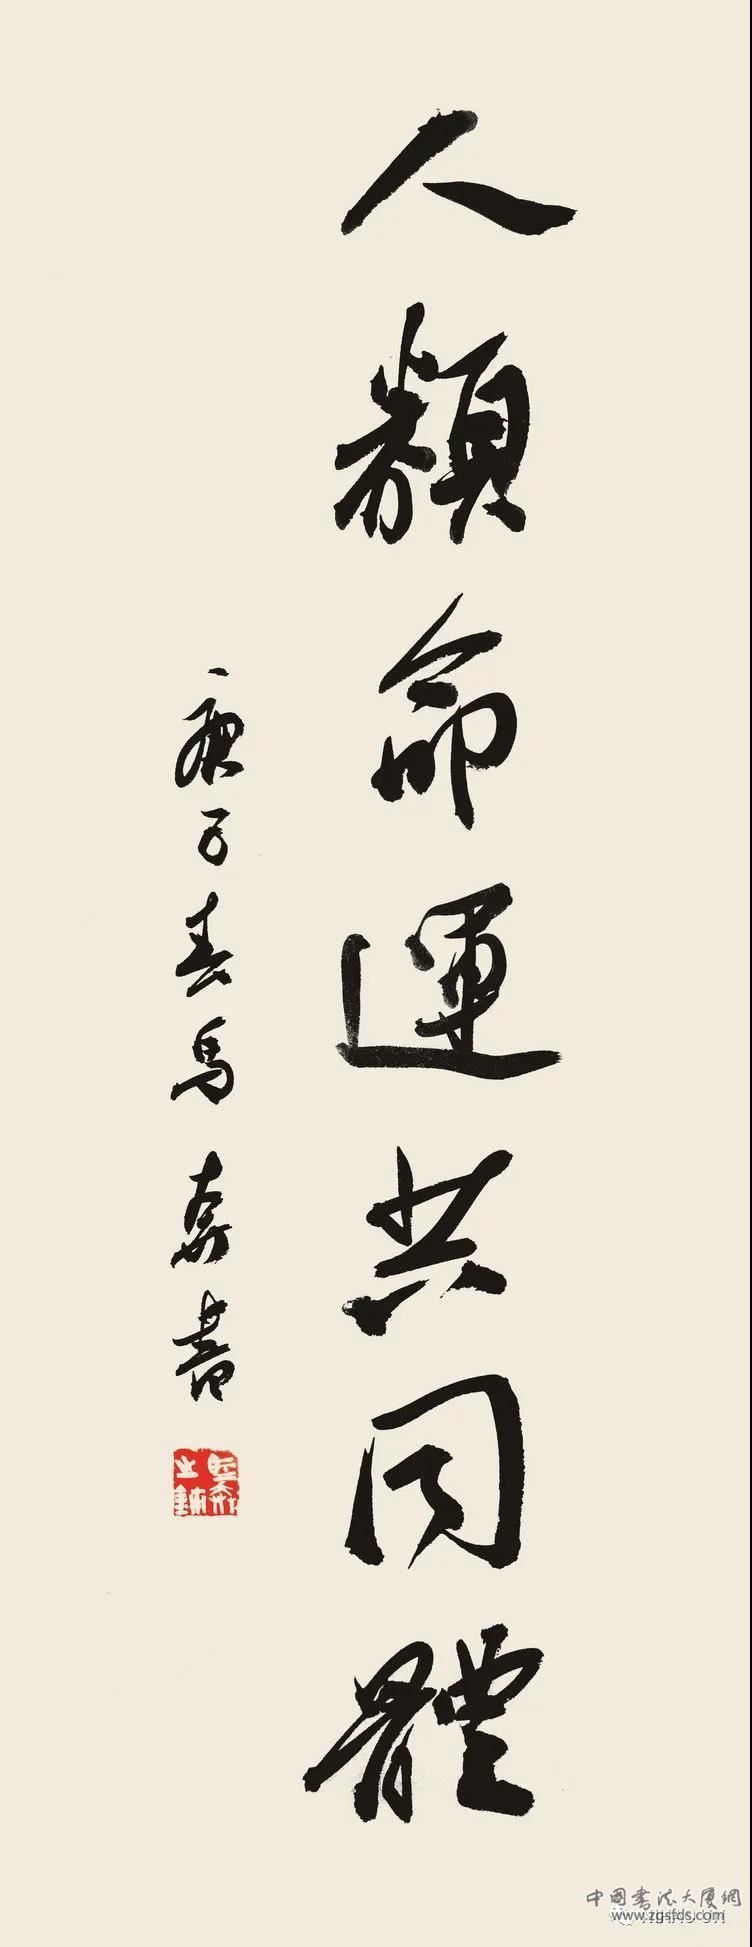 人類命運共同體
庚子春馬奔書
中國書法大廈網
www.zgsfds.com